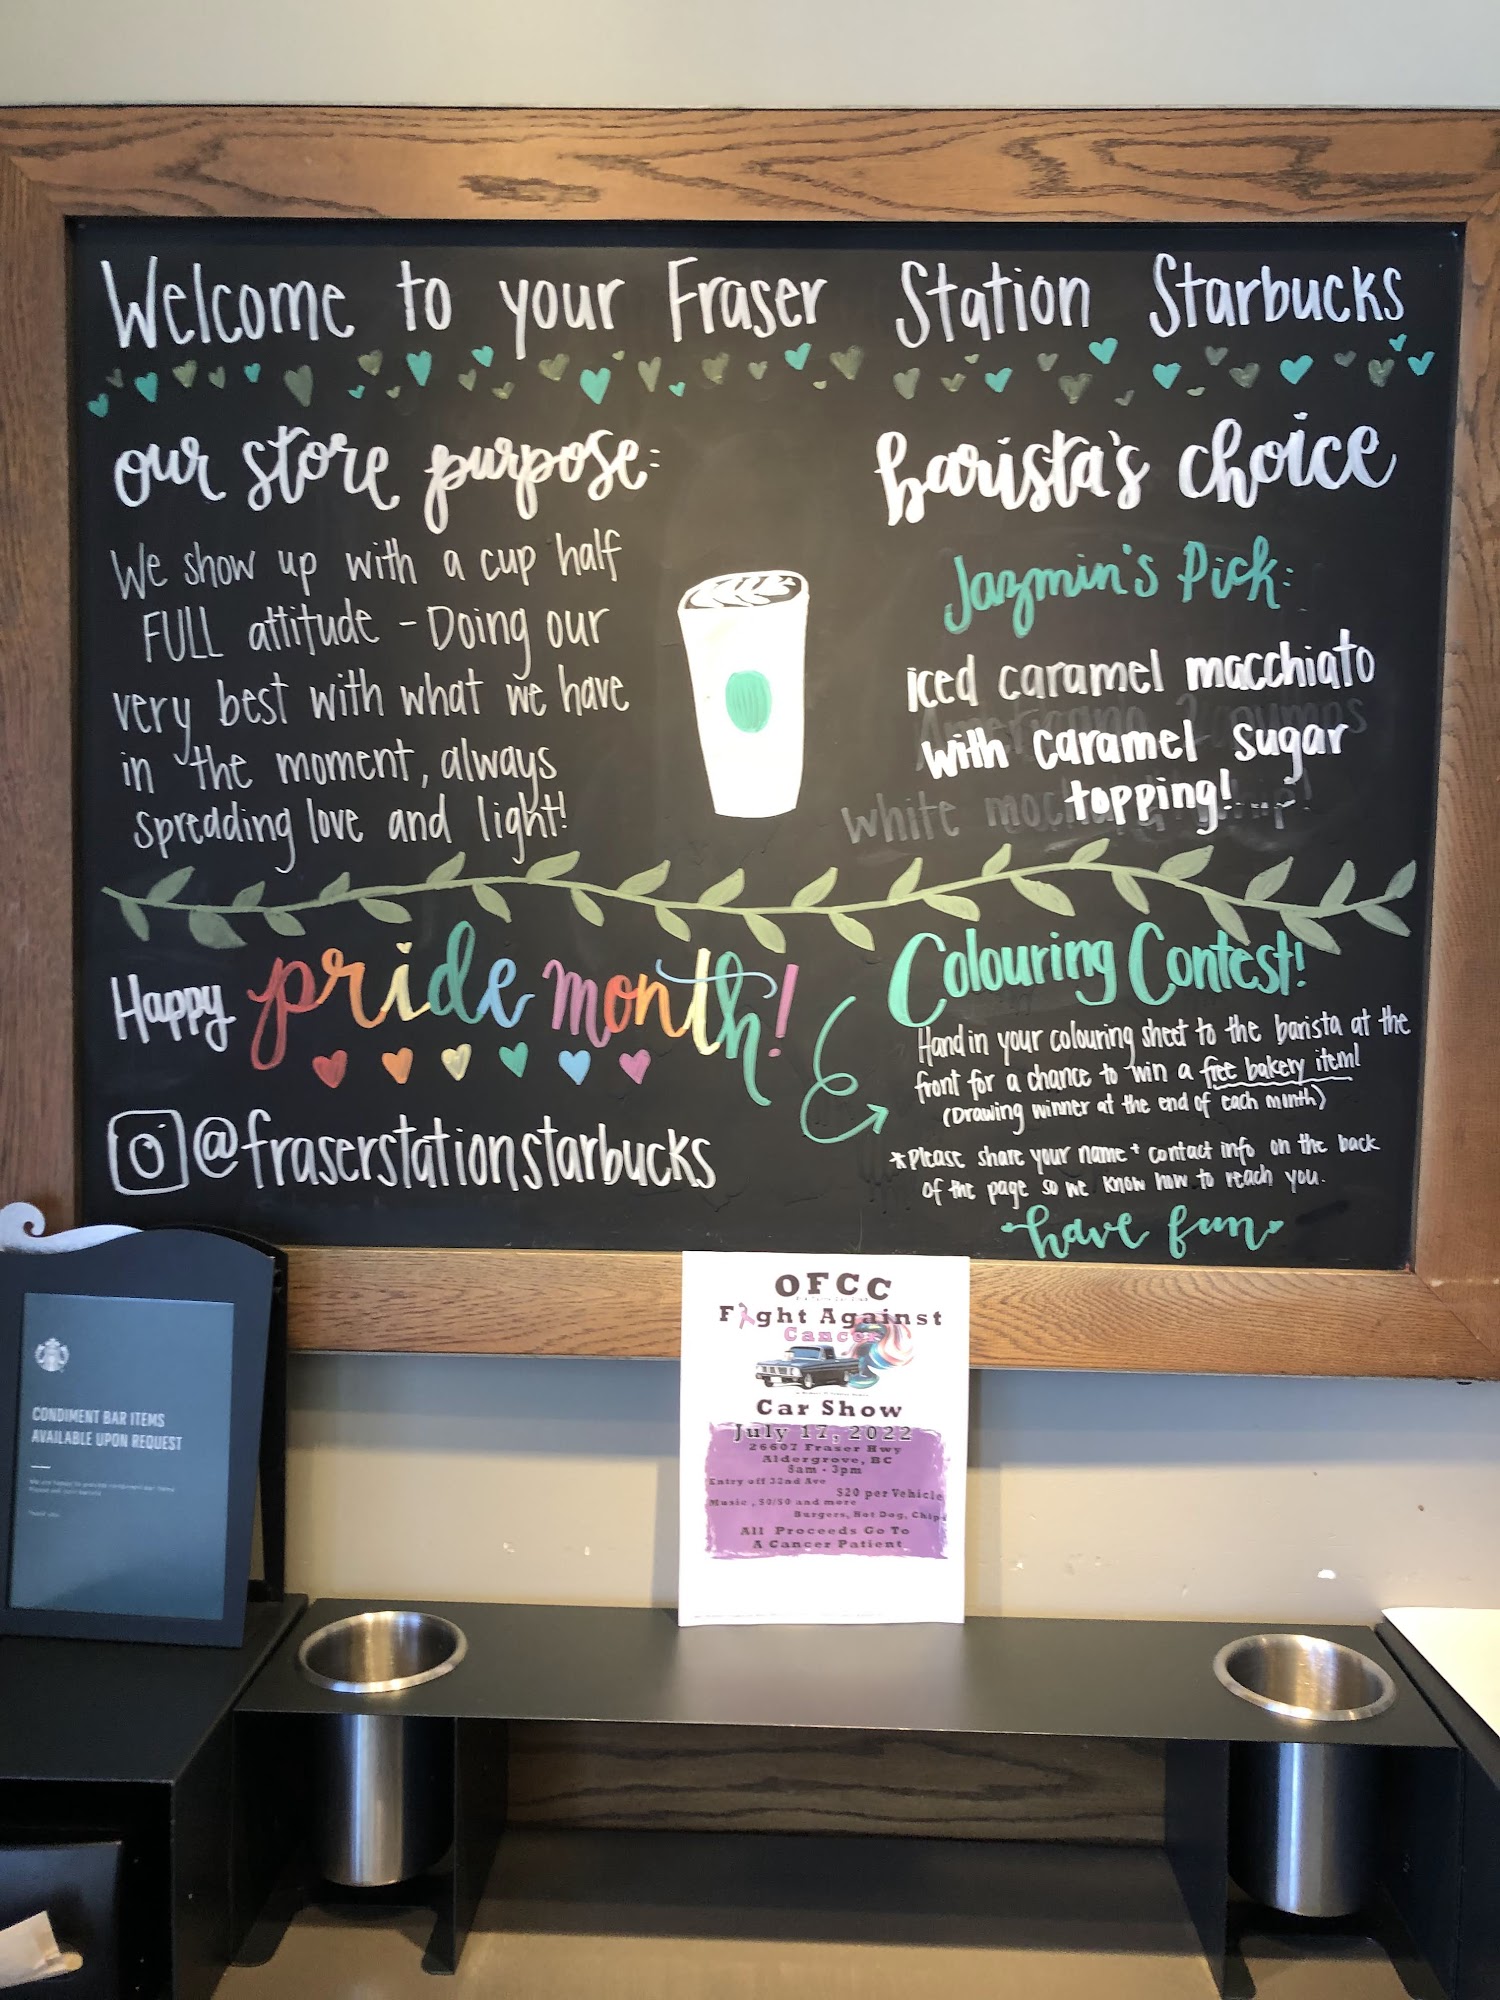 Welcome to your Fraser Station Starbucks
our store purpose:
We show up with a cup half
FULL attitude - Doing our
very best with what we have
in the moment, always
spreading love and light!
barista's choice
Jazmin's Pick:
iced caramel macchiato
with caramel sugar
topping!
white
Happy pride month!
@fraserstationstarbucks
Colouring Contest!
Hand in your colouring sheet to the barista at the
front for a chance to win a free bakery item!
(Drawing winner at the end of each month)
*Please share your name + contact info on the back
of the page so we know how to reach you.
have fun
CONDIMENT BAR ITEMS
AVAILABLE UPON REQUEST
We are happy to provide condiment bar items
Please ask your barista
Thank you
OFCC
Fight Against
Cancer
Car Show
July 17, 2022
26607 Fraser Hwy
Aldergrove, BC
8am - 3pm
Entry off 32nd Ave
$20 per Vehicle
Music, 50/50 and more
Burgers, Hot Dog, Chips
All Proceeds Go To
A Cancer Patient